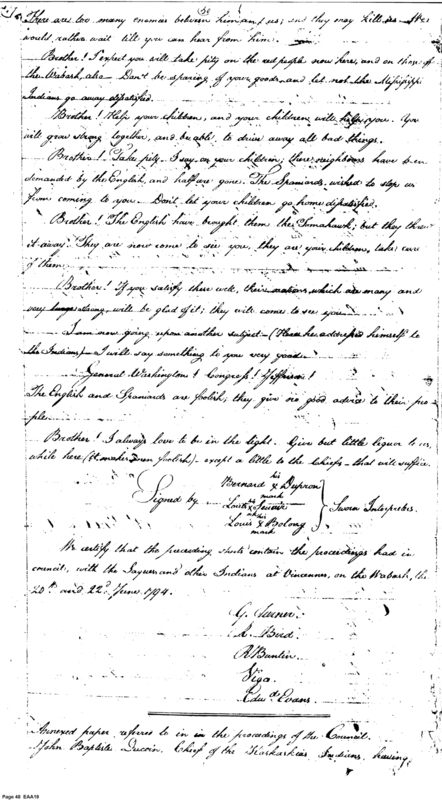 There are too many enemies between him and us; and they may kill us. We
would rather wait till you can hear from him.
Brother! I expect you will take pity on the red people now here, and on those of
the Wabash, also. Don't be sparing of your goods, and let not the Mississippi
Indians go away dissatisfied.
Brother! Help your children, and your children will help you. You
will grow strong together, and be able to drive away all bad things.
Brother! Take pity, I say, on your children, these neighbors have been
demanded by the English, and half are gone. The Spaniards wished to stop us
from coming to you. Don't let your children go home dissatisfied.
Brother! The English have brought them the Tomahawk; but they threw
it away. They are now come to see you, they are your children, take care
of them.
Brother! If you satisfy these well, their nations, which are many and
very strong, will be glad of it; they will come to see you.
I am now going upon another subject - (Here he addressed himself to
the Indians) - I will say something to you very good.
General Washington! Congress! Jefferson!
The English and Spaniards are foolish; they give no good advice to their peo-
ple.
Brother! I always love to be in the light. Give but little liquor to us,
while here (it makes men foolish) - except a little to the Chiefs - that will suffice.
Bernard his x mark Dupron
Signed by Louis x mark
Louis his x mark Bolong
Sworn Interpreters.
We certify that the preceding sheets contain the proceedings had in
council, with the Saques and other Indians at Vincennes, on the Wabash, the
20th and 22d June 1794.
G. Turner.
A. Bird
R Buntin
Vigo
Edwd Evans.
Annexed paper referred to in in the proceedings of the Council.
John Baptiste Ducoin, Chief of the Kaskaskias Indians, having,
Page 48 EAA19